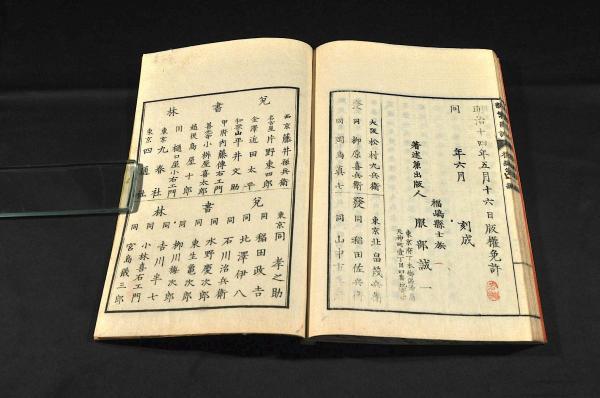 明治十四年五月十六日版權免許
同 年六月 刻成
著述兼出版人
福嶋縣士族
服部誠一
大阪 松村九兵衛
同 柳原喜兵衛
同 岡島真七
發
東京 北畠茂兵衛
同 稲田佐兵衛
同 山中市兵衛
兌
書
林
西京 藤井孫兵衛
名古屋 片野東四郎
金澤 近田太平
和歌山 平井文助
甲府 内藤傳右エ門
善光寺 小桝屋喜太郎
越後 鳥屋十郎
川越 樋口屋小右エ門
東京 九春社
東京 四通社
兌
書
林
東京 同孝之助
同 稲田政吉
同 北澤伊八
同 石川治兵衛
同 水野慶次郎
同 東生亀次郎
同 柳川梅次郎
同 吉川半七
同 小林喜右エ門
同 宮島儀三郎